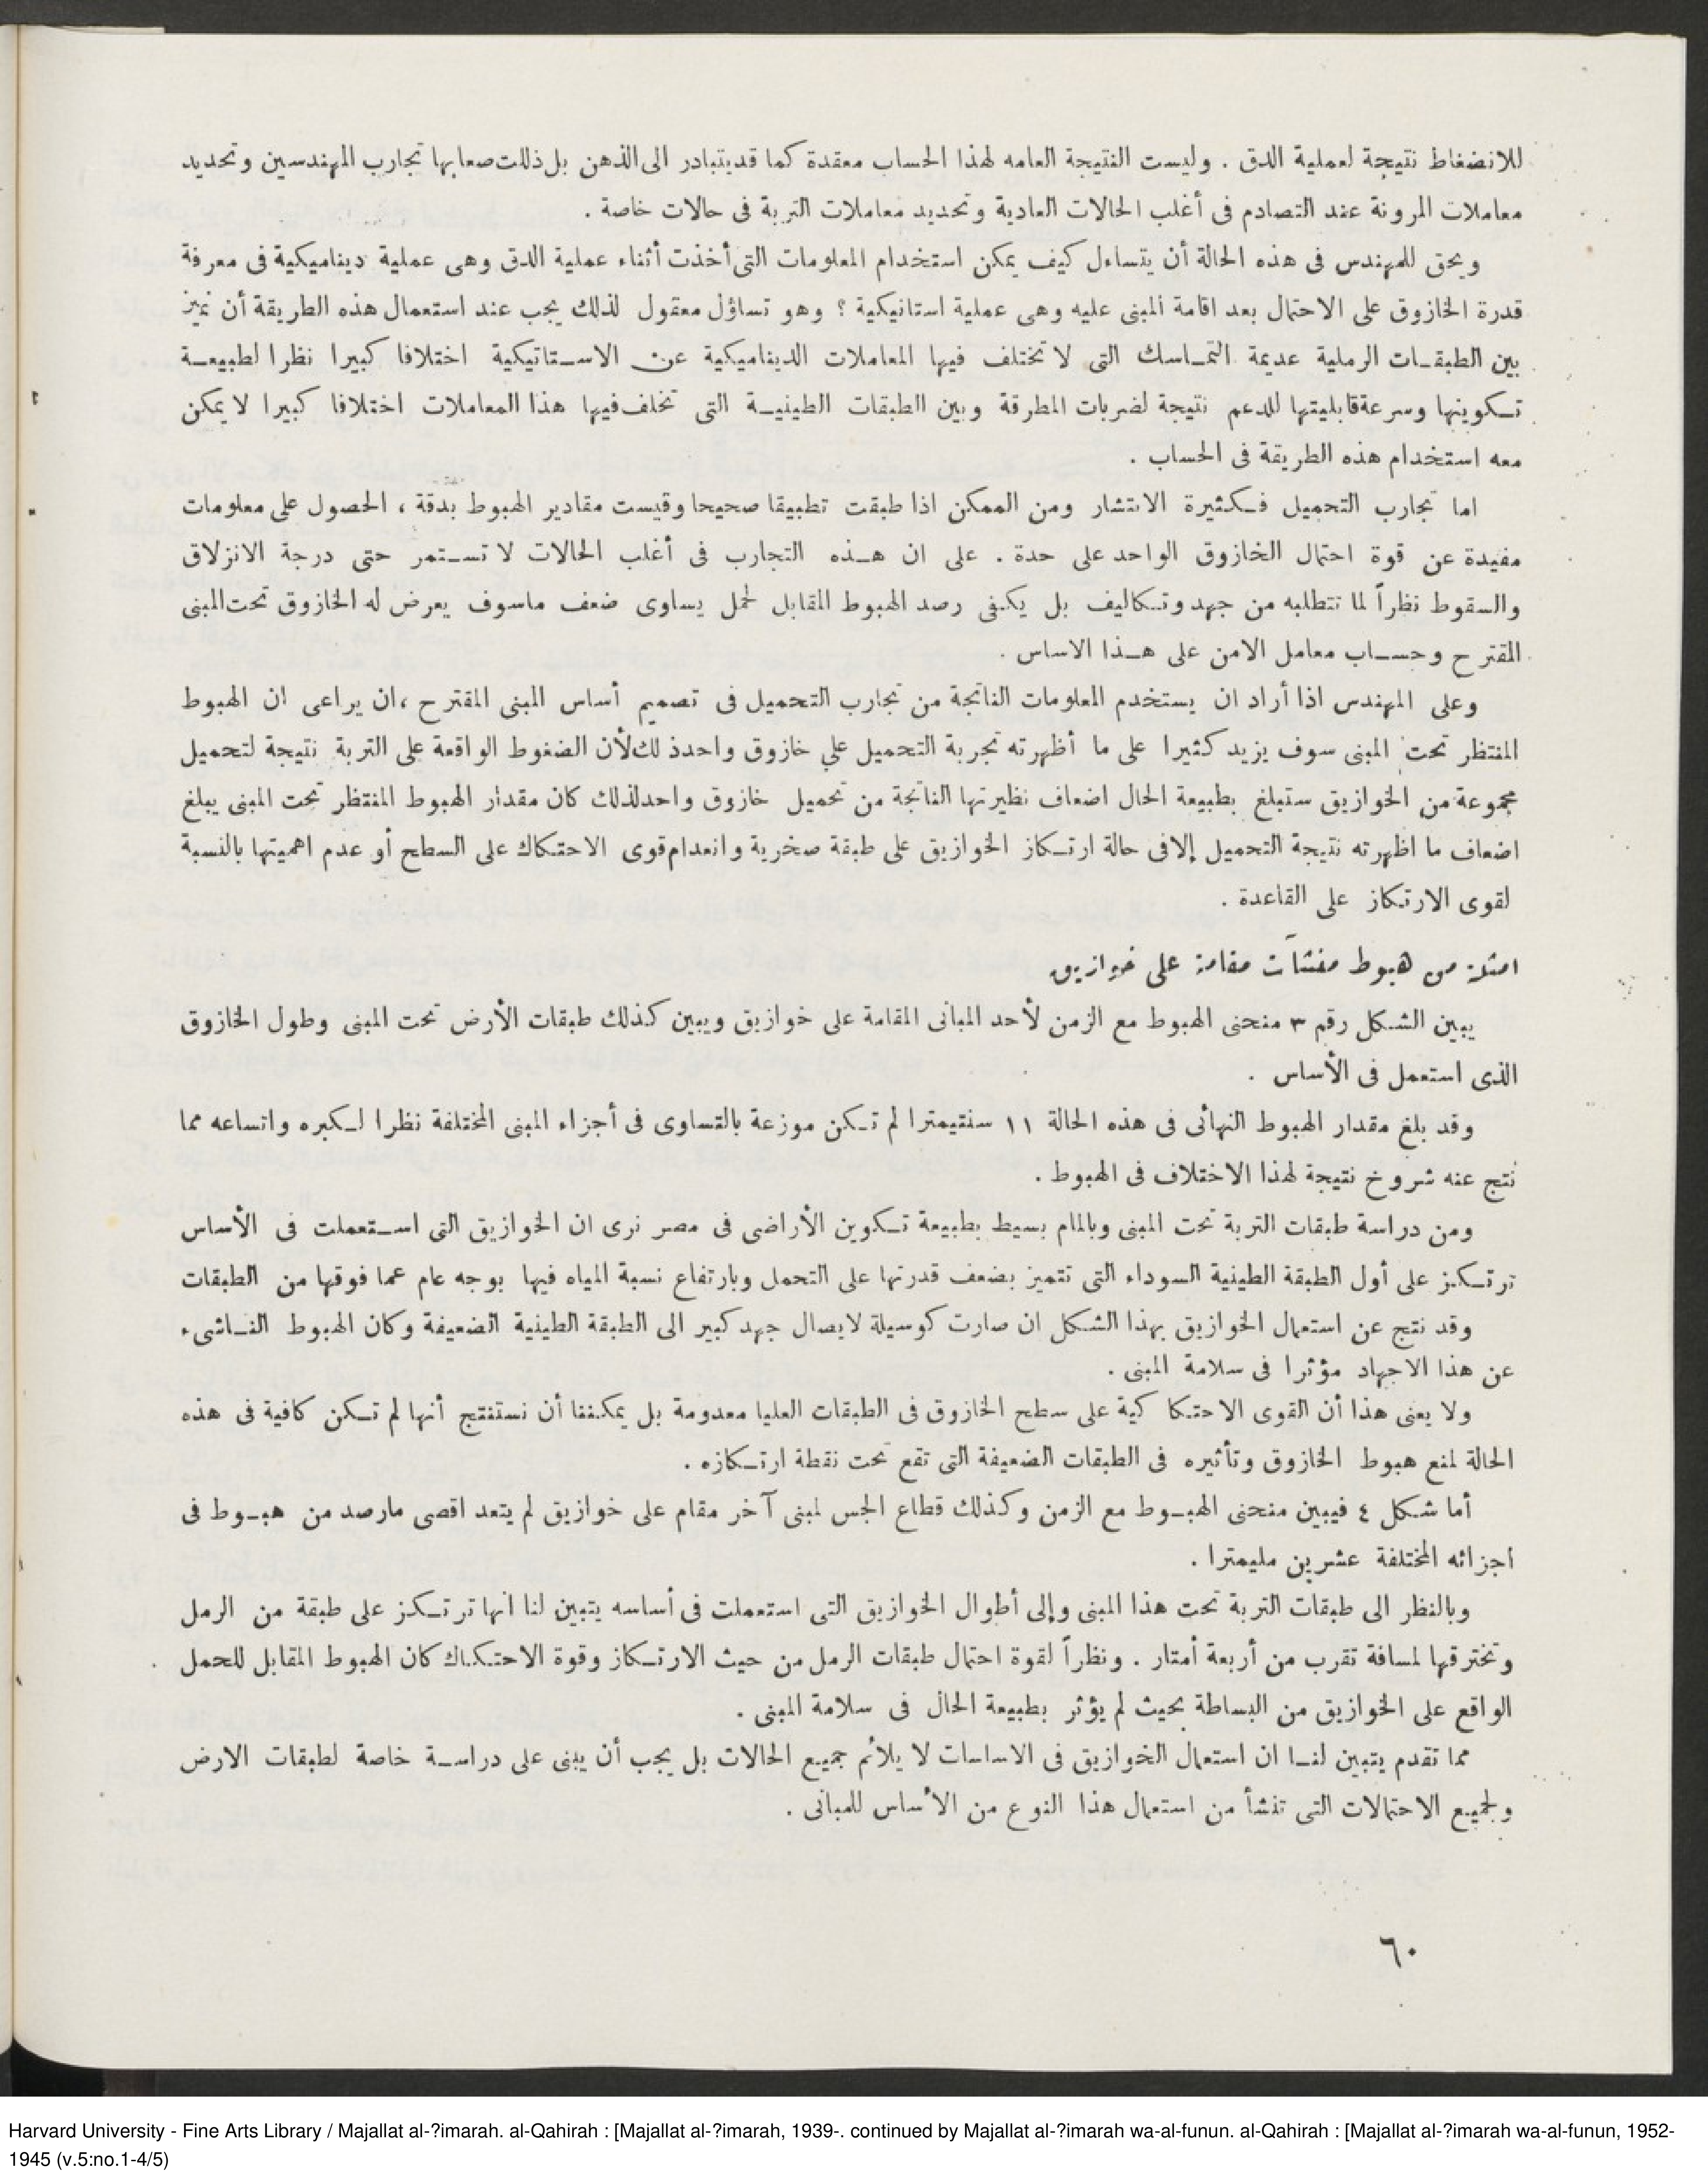 للانضغاط نتيجة لعملية الدق . وليست النتيجة العامه لهذا الحساب معقدة كما قديتبادر الى الذهن بل ذللت صعابها تجارب المهندسين وتحديد
معاملات المرونة عند التصادم فى أغلب الحالات العادية وتحديد معاملات التربة فى حالات خاصة .
ويحق للمهندس فى هذه الحالة أن يتساءل كيف يمكن استخدام المعلومات التى أخذت أثناء عملية الدق وهى عملية ديناميكية فى معرفة
قدرة الخازوق على الاحتمال بعد اقامة المبنى عليه وهى عملية استاتيكية ؟ وهو تساؤل معقول لذلك يجب عند استعمال هذه الطريقة أن نميز
بين الطبقات الرملية عديمة التماسك التى لا تختلف فيها المعاملات الديناميكية عن الاستاتيكية اختلافا كبيرا نظرا لطبيعة
تكوينها وسرعة قابليتها للدعم نتيجة لضربات المطرقة وبين الطبقات الطينية التى تخلف فيها هذا المعاملات اختلافا كبيرا لا يمكن
معه استخدام هذه الطريقة فى الحساب .
اما تجارب التحميل فكثيرة الانتشار ومن الممكن اذا طبقت تطبيقا صحيحا وقيست مقادير الهبوط بدقة ، الحصول على معلومات
مفيدة عن قوة احتمال الخازوق الواحد على حدة . على ان هذه التجارب فى أغلب الحالات لا تستمر حتى درجة الانزلاق
والسقوط نظراً لما تتطلبه من جهد وتكاليف بل يكفى رصد الهبوط المقابل لحمل يساوى ضعف ماسوف يعرض له الخازوق تحت المبنى
المقترح وحساب معامل الامن على هذا الاساس .
وعلى المهندس اذا أراد ان يستخدم المعلومات الناتجة من تجارب التحميل فى تصميم أساس المبنى المقترح ، ان يراعى ان الهبوط
المنتظر تحت المبنى سوف يزيد كثيرا على ما أظهرته تجربة التحميل علي خازوق واحدذ لك لأن الضغوط الواقعة على التربة نتيجة لتحميل
مجموعة من الخوازيق ستبلغ بطبيعة الحال اضعاف نظيرتها الناتجة من تحميل خازوق واحدلذلك كان مقدار الهبوط المنتظر تحت المبنى يبلغ
اضعاف ما اظهرته نتيجة التحميل إلافى حالة ارتكاز الخوازيق على طبقة صخرية وانعدام قوى الاحتكاك على السطح أو عدم اهميتها بالنسبة
لقوى الارتكاز على القاعدة .
امثلة من هبوط منشآت مقامة على خوازيق
يبين الشكل رقم ٣ منحنى الهبوط مع الزمن لأحد المبانى المقامة على خوازيق ويبين كذلك طبقات الأرض تحت المبنى وطول الخازوق
الذى استعمل فى الأساس .
وقد بلغ مقدار الهبوط النهائى فى هذه الحالة ١١ سنتيمترا لم تكن موزعة بالتساوى فى أجزاء المبنى المختلفة نظرا لكبره واتساعه مما
نتج عنه شروخ نتيجة لهذا الاختلاف فى الهبوط .
ومن دراسة طبقات التربة تحت المبنى وبالمام بسيط بطبيعة تكوين الأراضى فى مصر نرى ان الخوازيق التى استعملت فى الأساس
ترتكز على أول الطبقة الطينية السوداء التى تتميز بضعف قدرتها على التحمل وبارتفاع نسبة المياه فيها بوجه عام عما فوقها من الطبقات
وقد نتج عن استعمال الخوازيق بهذا الشكل ان صارت كوسيلة لايصال جهد كبير الى الطبقة الطينية الضعيفة وكان الهبوط الناشىء
عن هذا الاجهاد مؤثرا فى سلامة المبنى .
ولا يعنى هذا أن القوى الاحتكا كية على سطح الخازوق فى الطبقات العليا معدومة بل يمكننا أن نستنتج أنها لم تكن كافية فى هذه
الحالة لمنع هبوط الخازوق وتأثيره فى الطبقات الضعيفة التى تقع تحت نقطة ارتكازه .
أما شكل ٤ فيبين منحنى الهبوط مع الزمن وكذلك قطاع الجس لمبنى آخر مقام على خوازيق لم يتعد اقصى مارصد من هبوط فى
اجزائه المختلفة عشرين مليمترا .
وبالنظر الى طبقات التربة تحت هذا المبنى وإلى أطوال الخوازيق التى استعملت فى أساسه يتبين لنا انها ترتكز على طبقة من الرمل
وتخترقها لمسافة تقرب من أربعة أمتار . ونظراً لقوة احتمال طبقات الرمل من حيث الارتكاز وقوة الاحتكاك كان الهبوط المقابل للحمل
الواقع على الخوازيق من البساطة بحيث لم يؤثر بطبيعة الحال فى سلامة المبنى .
مما تقدم يتبين لنا ان استعمال الخوازيق فى الاساسات لا يلائم جميع الحالات بل يجب أن يبنى على دراسة خاصة لطبقات الارض
ولجميع الاحتمالات التى تنشأ من استعمال هذا النوع من الأساس للمبانى .
٦٠
Harvard University - Fine Arts Library / Majallat al-?imarah. al-Qahirah : [Majallat al-?imarah, 1939-. continued by Majallat al-?imarah wa-al-funun. al-Qahirah : [Majallat al-?imarah wa-al-funun, 1952-
1945 (v.5:no.1-4/5)